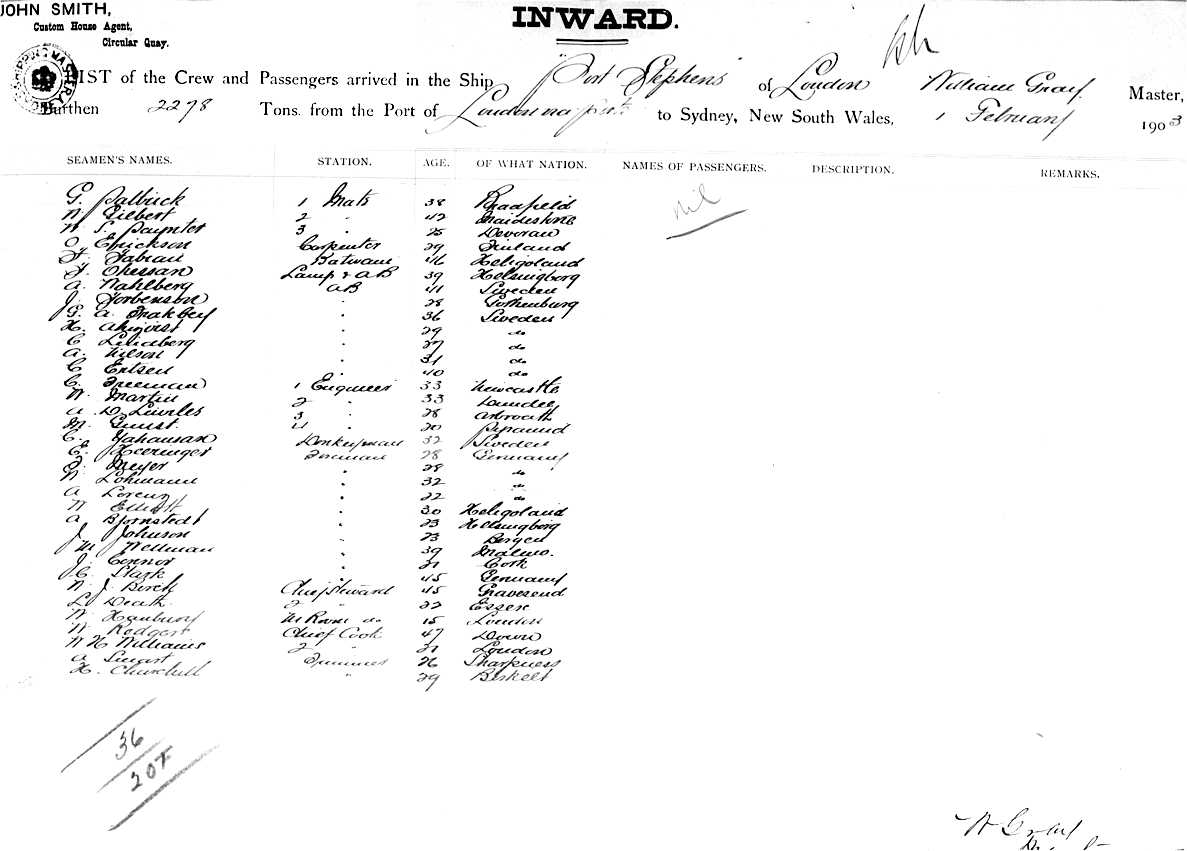 JOHN SMITH,
Custom House Agent,
Circular Quay.
INWARD.
LIST of the Crew and Passengers arrived in the Ship "Port Stephens" of London William Gray Master,
Burthen 2278 Tons. from the Port of London via to Sydney, New South Wales, 1 February 1903
SEAMEN'S NAMES. STATION. AGE. OF WHAT NATION. NAMES OF PASSENGERS. DESCRIPTION. REMARKS.
G. 1 Mate 38 nil
W. Gilbert 2 " 42 Maidstone
W. S. Paynter 3 " 25 Devoran
O. Erickson Carpenter 29 Finland
F. Fabian 46 Heligoland
Lamp & AB 39 Helsingborg
A. Wahlberg AB 41 Sweden
J. Torbenson " 28 Gothenburg
G. A. " 36 Sweden
H. " 29 do
C. Lindberg " 27 do
A. Nilson " 31 do
C. " 40 do
C. Freeman 1 Engineer 33 Newcastle
W. Martin 2 " 33 Dundee
A. D. 3 " 28 Arbroath
M. 4 " 20
C. Donkeyman 32 Sweden
E. Heeringer Fireman 28 Germany
Meyer " 28 do
W. Lohmann " 32 do
A. Lorenz " 22 do
W. Elliott " 30 Heligoland
A. Bjornstedt " 23 Helsingborg
J. Johnson " 23 Bergen
M. Wellman " 39 Malmo.
J. Connor " 21 Cork
J. C. Stark " 45 Germany
W. J. Birch Chief Steward 45 Gravesend
L. Death 2 " 22 Essex
W. Hanbury M Room do 15 London
W. Rodgers Chief Cook 47 Down
W H Williams 2 " 21 London
A. Trimmer 26 Sharpness
H. Churchill " 29
36
207
W Gray